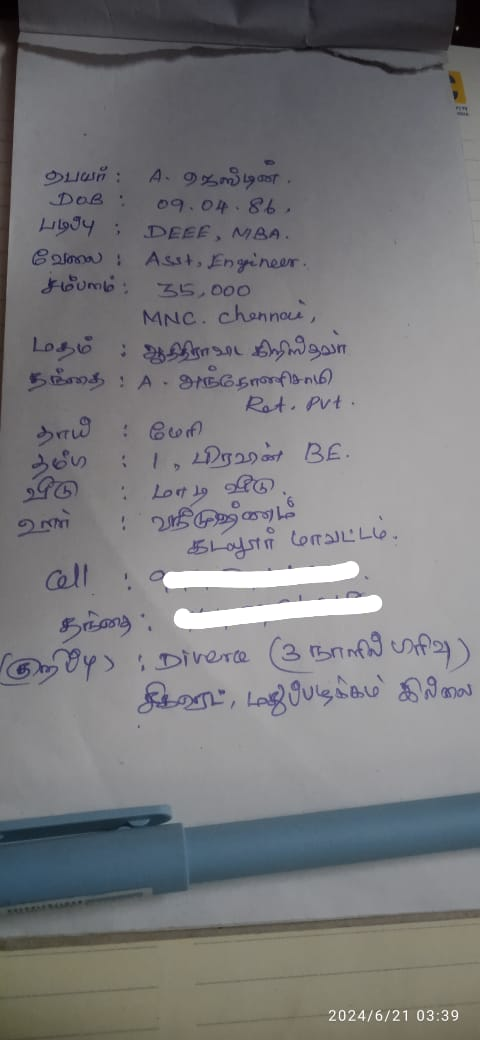 பெயர் : A. ஜெஸ்டின்.
DOB : 09.04.86.
படிப்பு : DEEE, MBA.
வேலை : Asst, Engineer.
சம்பளம் : 35,000
MNC. Chennai,
மதம் : ஆதிதிராவிட கிறிஸ்தவர்
தந்தை : A. அந்தோணிசாமி
Ret. Pvt.
தாய் : மேரி
தம்பி : 1, பிரவீன் BE.
வீடு : மாடி வீடு.
ஊர் :
கடலூர் மாவட்டம்.
Cell :
தந்தை :
(குறிப்பு) : Diverce (3 நாளில் பிரிவு)
சிகரெட், மதுப்பழக்கம் இல்லை
2024/6/21 03:39